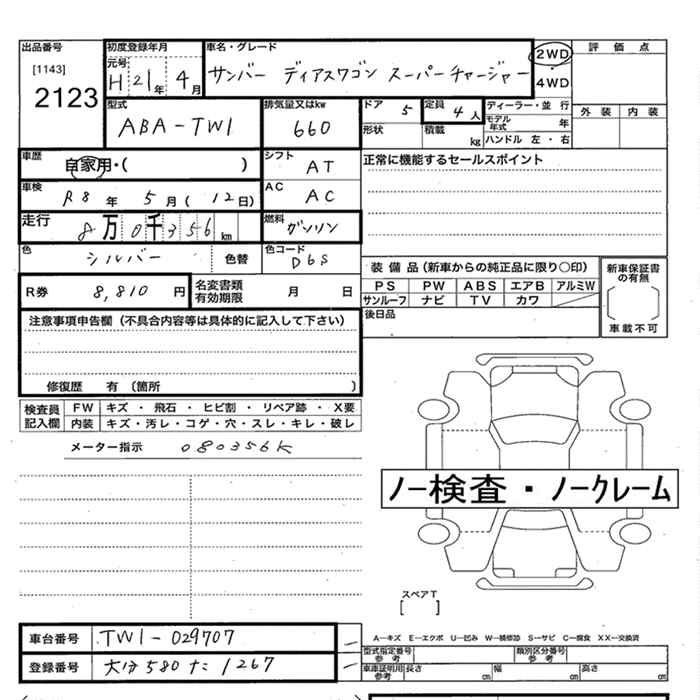 出品番号 初度登録年月 車名・グレード 2WD 評価点
[1143] 元号 H 21年 4月 サンバー ディアスワゴン スーパーチャージャー ・ 4WD
2123
型式 ABA-TW1 排気量又はkw 660 ドア 5 定員 4人 ディーラー・並行 外装 内装
形状 積載 kg モデル年式 年
ハンドル 左・右
車歴 自家用・( ) シフト AT 正常に機能するセールスポイント
車検 R8年 5月(12日) AC AC
走行 8万0千356km 燃料 ガソリン
色 シルバー 色替 色コード D6S
装備品(新車からの純正品に限り○印) 新車保証書の有無
R券 8,810円 名変書類有効期限 月 日 PS PW ABS エアB アルミW
サンルーフ ナビ TV カワ
車載不可
注意事項申告欄(不具合内容等は具体的に記入して下さい) 後日品
修復歴 有(箇所 )
検査員記入欄 FW キズ・飛石・ヒビ割・リペア跡・X要
内装 キズ・汚レ・コゲ・穴・スレ・キレ・破レ
メーター指示 080356K
ノー検査・ノークレーム
スペアT
[ ]
車台番号 TW1-029707 A―キズ E―エクボ U―凹み W―補修跡 S―サビ C―腐食 XX―交換済
型式指定番号参考 類別区分番号参考
登録番号 大分580た1267 車庫証明用参考 長さ cm 幅 cm 高さ cm